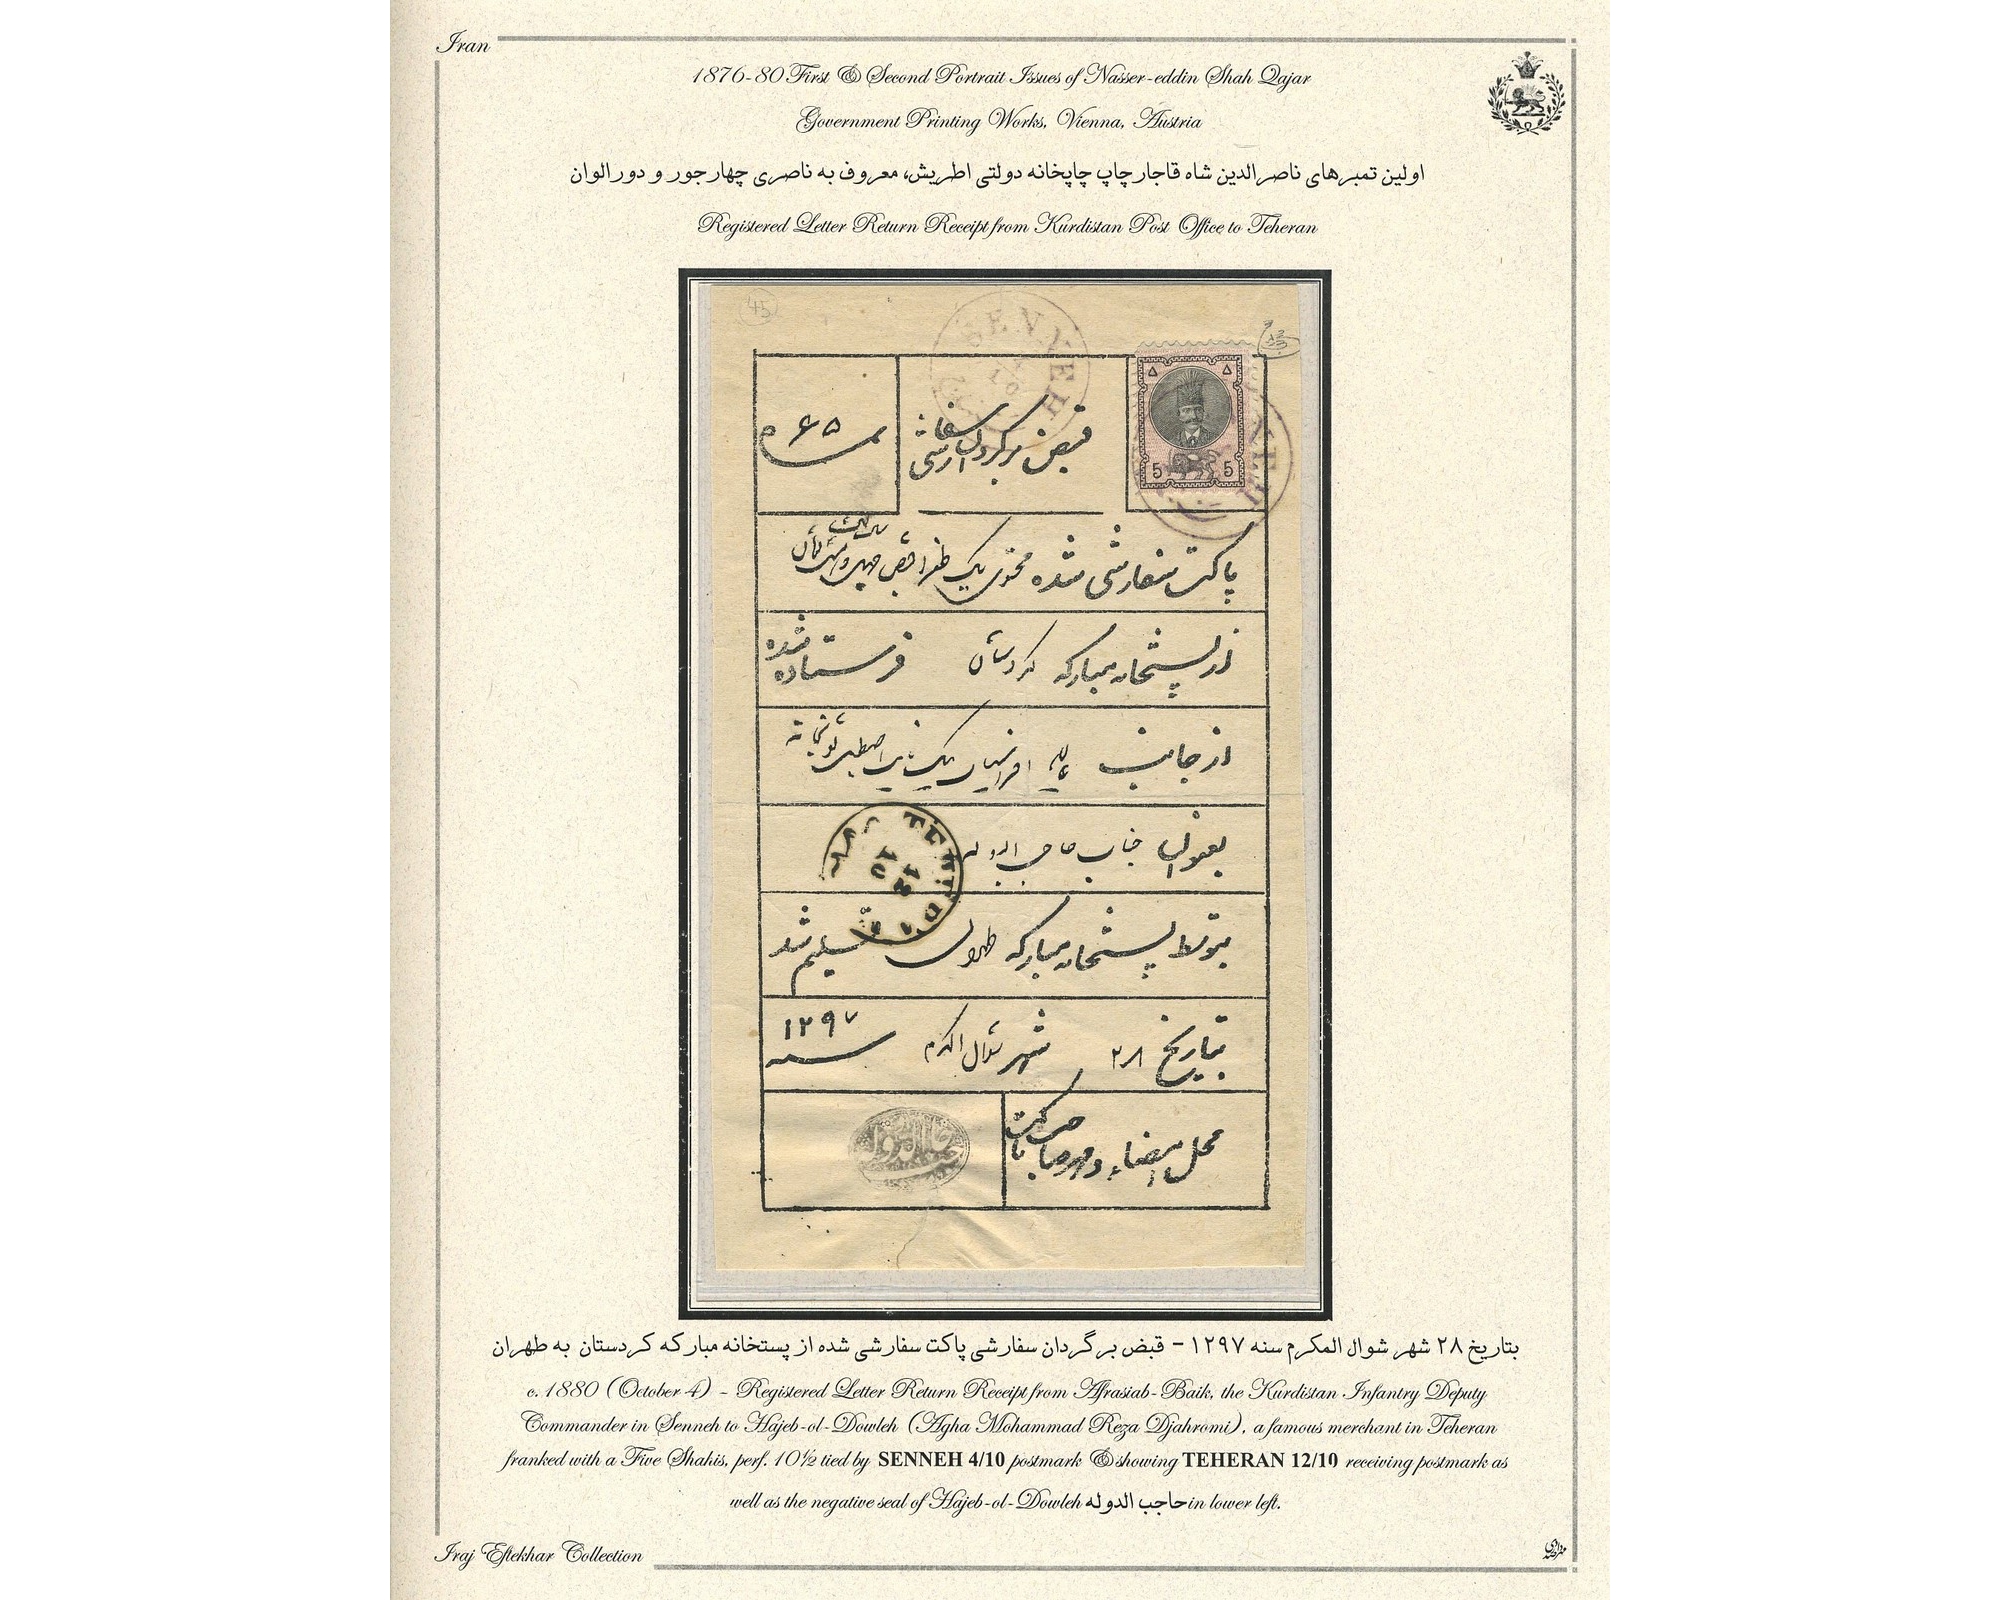 Iran
1876-80 First & Second Portrait Issues of Nasser-eddin Shah Qajar
Government Printing Works, Vienna, Austria
اولین تمبرهای ناصرالدین شاه قاجار چاپ چاپخانه دولتی اطریش، معروف به ناصری چهارجور و دورالوان
Registered Letter Return Receipt from Kurdistan Post Office to Teheran
45
SENNEH
۵ ۵
5 5
نمره ۶۵
قبض برگردان سفارشی
پاکت سفارشی شده محتوی یک طغرا قبض چهل و
از پستخانه مبارکه کردستان فرستاده شده
از جانب افراسیاب بیک نایب
بعنوان جناب حاجب الدوله
TEHERAN
12
10
توسط پستخانه مبارکه طهران تسلیم شد
بتاریخ ۲۸ شهر شوال المکرم سنه ۱۲۹۷
محل امضاء و مهر صاحب پاکت
بتاریخ ۲۸ شهر شوال المکرم سنه ۱۲۹۷ - قبض برگردان سفارشی پاکت سفارشی شده از پستخانه مبارکه کردستان به طهران
c. 1880 (October 4) - Registered Letter Return Receipt from Afrasiab-Baik, the Kurdistan Infantry Deputy
Commander in Senneh to Hajeb-ol-Dowleh (Agha Mohammad Reza Djahromi), a famous merchant in Teheran
franked with a Five Shahis, perf. 10½ tied by SENNEH 4/10 postmark & showing TEHERAN 12/10 receiving postmark as
well as the negative seal of Hajeb-ol-Dowleh حاجب الدوله in lower left.
Iraj Eftekhar Collection